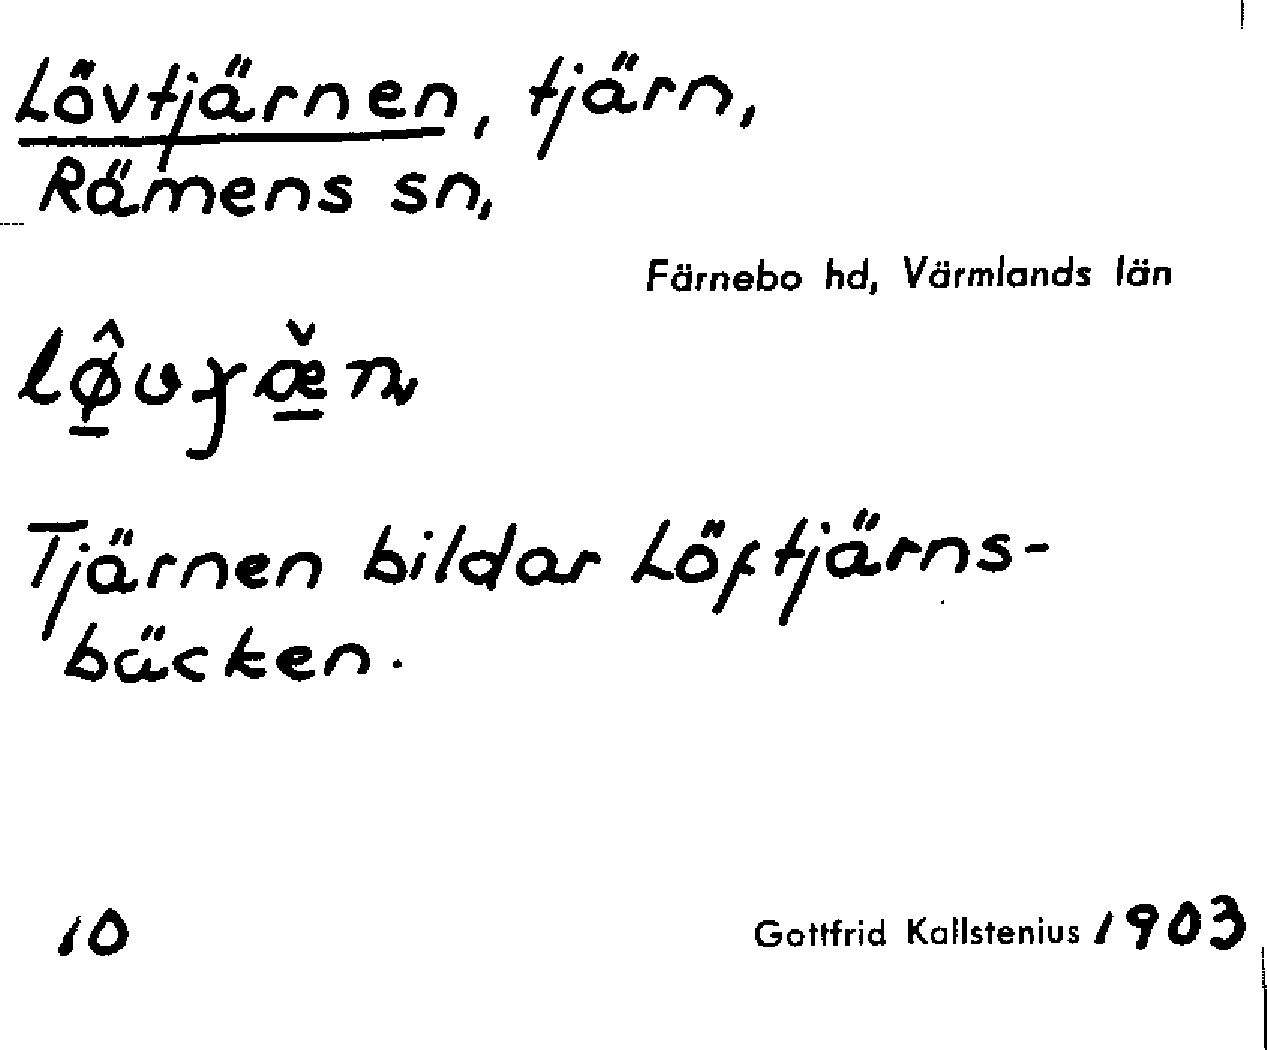 Lövtjärnen, tjärn,
Rämens sn,
Färnebo hd, Värmlands län
Tjärnen bildar Löftjärns-
bäcken.
10
Gottfrid Kallstenius 1903